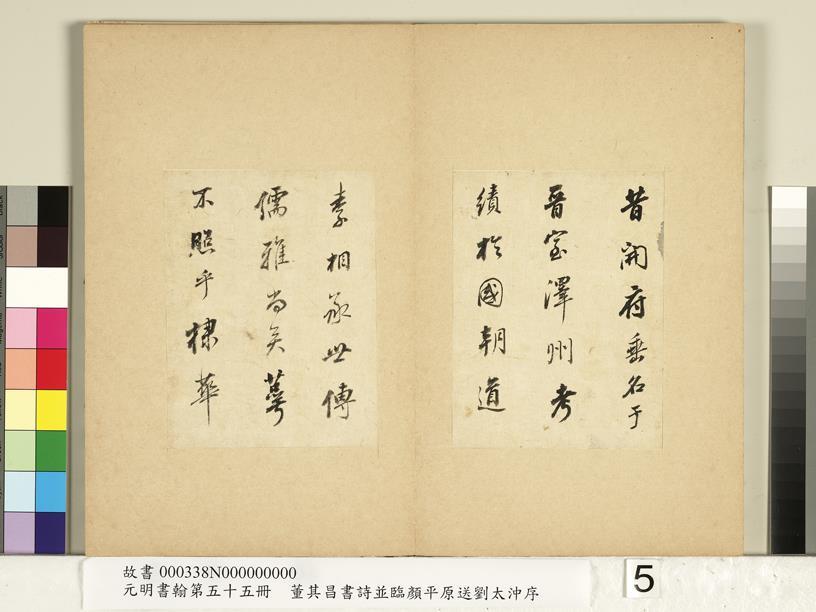 昔開府垂名于
晉室澤州考
績扵國朝道
素相承世傳
儒雅尚矣萼
不照乎棣華
故書 000338N000000000
元明書翰第五十五冊　董其昌書詩並臨顏平原送劉太沖序
5